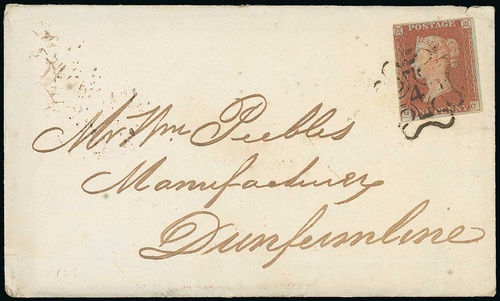 POSTAGE
4
Mr. Wm Peebles
Manufacturer
Dunfermline